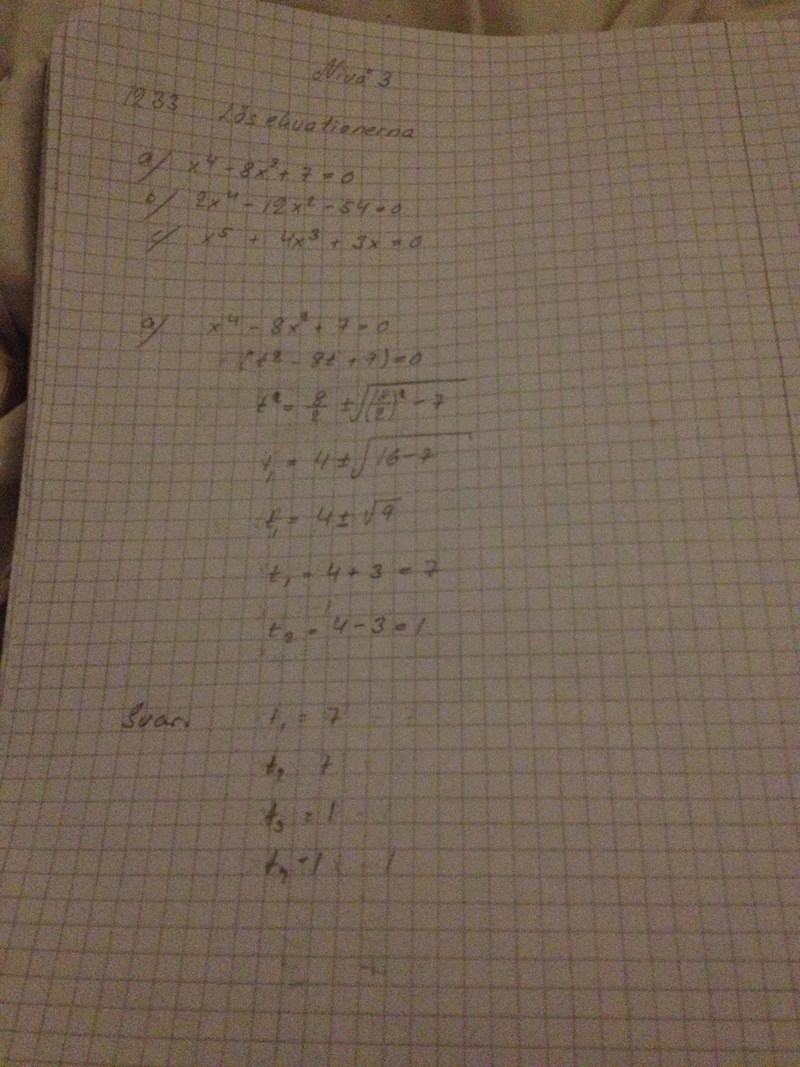 Nivå 3
1233 Lös ekvationerna
a) x⁴ - 8x² + 7 = 0
b) 2x⁴ - 12x² - 54 = 0
c) x⁵ + 4x³ + 3x = 0
a) x⁴ - 8x² + 7 = 0
(t² - 8t + 7) = 0
t² = 8/2 ± √((8/2)² - 7
t₁ = 4 ± √16 - 7
t₁ = 4 ± √9
t₁ = 4 + 3 = 7
t₂ = 4 - 3 = 1
Svar: t₁ = 7
t₂ 7
t₃ = 1
t₄ -1